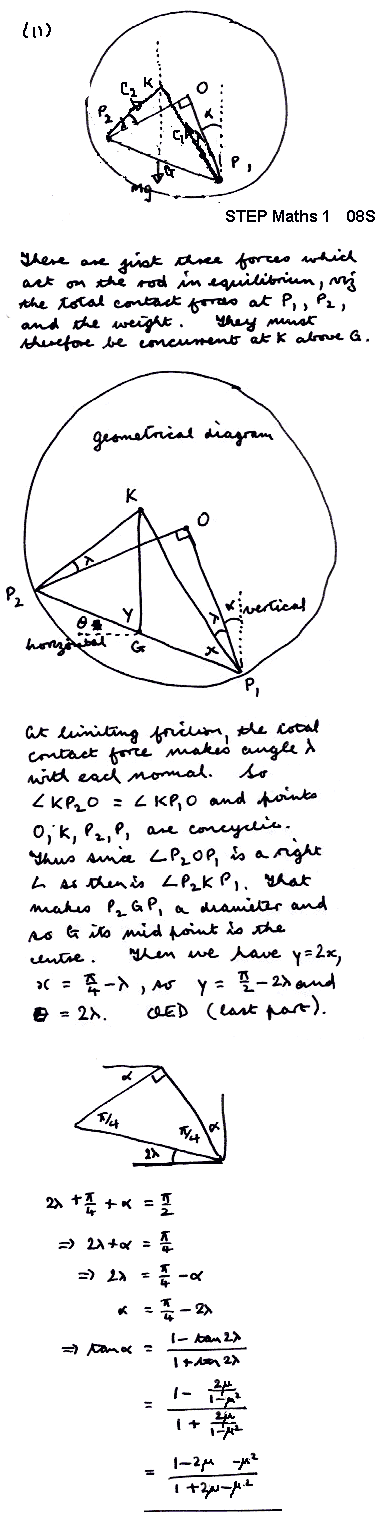 (11)
C₂ K O
P₂ λ α
C₁ λ
G P₁
Mg
STEP Maths 1 08S
There are just three forces which
act on the rod in equilibrium, viz
the total contact forces at P₁, P₂,
and the weight. They must
therefore be concurrent at K above G.
geometrical diagram
K
O
λ
P₂
α vertical
λ
θ y x
horizontal G
P₁
At limiting friction, the total
contact force makes angle λ
with each normal. So
∠KP₂O = ∠KP₁O and points
O, K, P₂, P₁ are concyclic.
Thus since ∠P₂OP₁ is a right
∠ so then is ∠P₂KP₁. That
makes P₂GP₁ a diameter and
so G its mid point is the
centre. Then we have y=2x,
x = π/4 - λ, so y = π/2 - 2λ and
θ = 2λ. QED (last part).
α
π/4 π/4 α
2λ
2λ + π/4 + α = π/2
⇒ 2λ+α = π/4
⇒ 2λ = π/4 - α
α = π/4 - 2λ
⇒ tan α = (1 - tan 2λ)/(1 + tan 2λ)
= (1 - 2μ/(1-μ²))/(1 + 2μ/(1-μ²))
= (1-2μ -μ²)/(1+2μ-μ²)